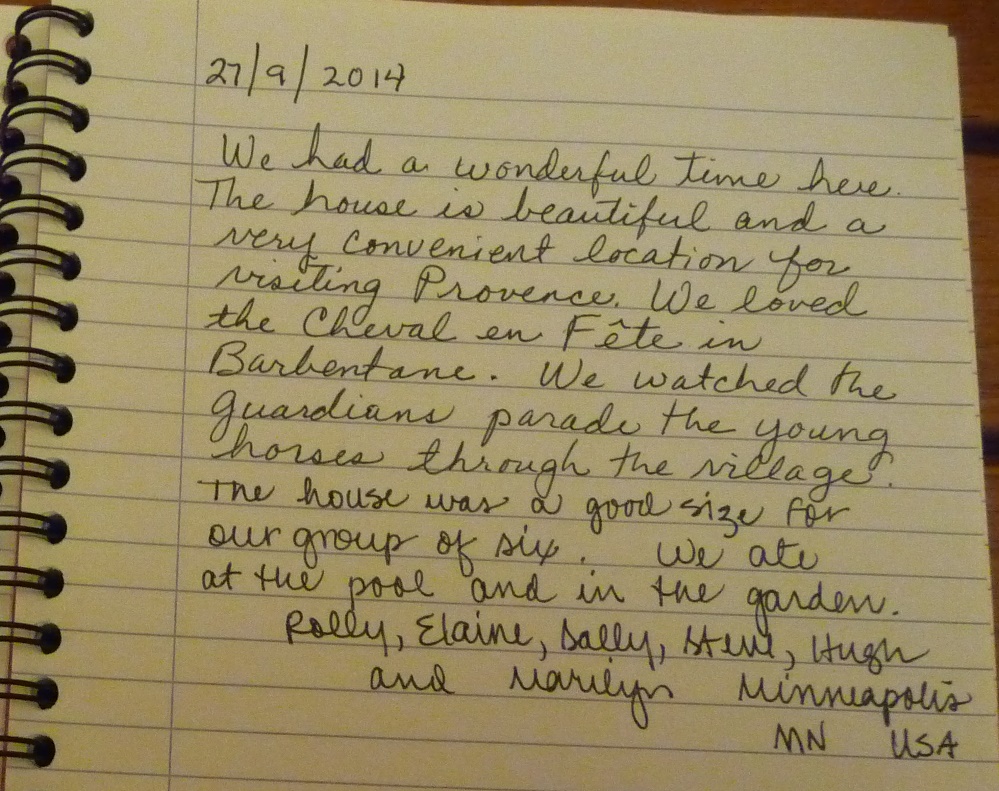 27/9/2014
We had a wonderful time here.
The house is beautiful and a
very convenient location for
visiting Provence. We loved
the Cheval en Fête in
Barbentane. We watched the
guardians parade the young
horses through the village.
The house was a good size for
our group of six. We ate
at the pool and in the garden.
Rolly, Elaine, Sally, Steve, Hugh
and Marilyn Minneapolis
MN USA